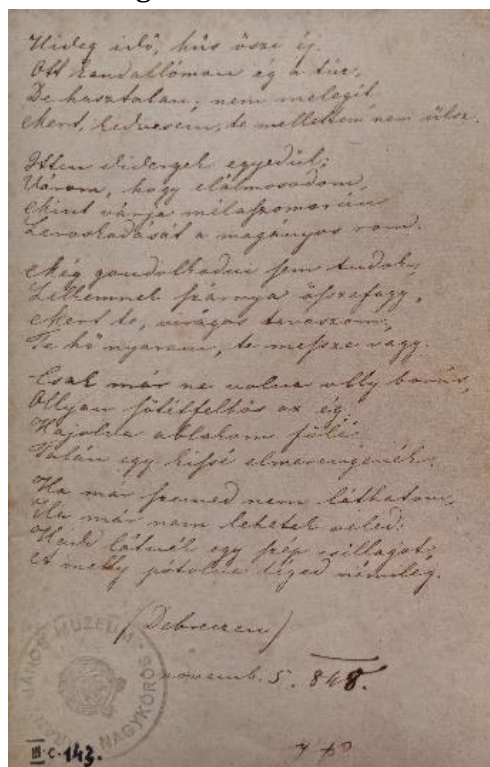 Hideg idő, hüs őszi éj.
Ott kandallóman ég a tűz,
De hasztalan; nem melegit
Mert, kedvesem, te mellettem nem ülsz.
Itten didergek egyedül;
Várom, hogy elálmosodom,
Mint várja mélaszomorún
Leroskadását a magányos rom.
Még gondolkodni sem tudok,
Lelkemnek szárnya összefagy,
Mert te, virágos tavaszom,
Te hő nyaram, te messze vagy.
Csak már ne volna olly borús,
Ollyan sötétfelhős az ég,
Hajolna ablakom fölé
Talán egy kissé elmerengenék.
Ha már szemed nem láthatom,
Ha már nem lehetek veled:
Hadd látnék egy szép csillagot,
A melly pótolna téged némileg.
(Debreczen)
novemb. 5. 848.
JÁNOS MUZEUM
NAGYKŐRÖS
III.c.143.